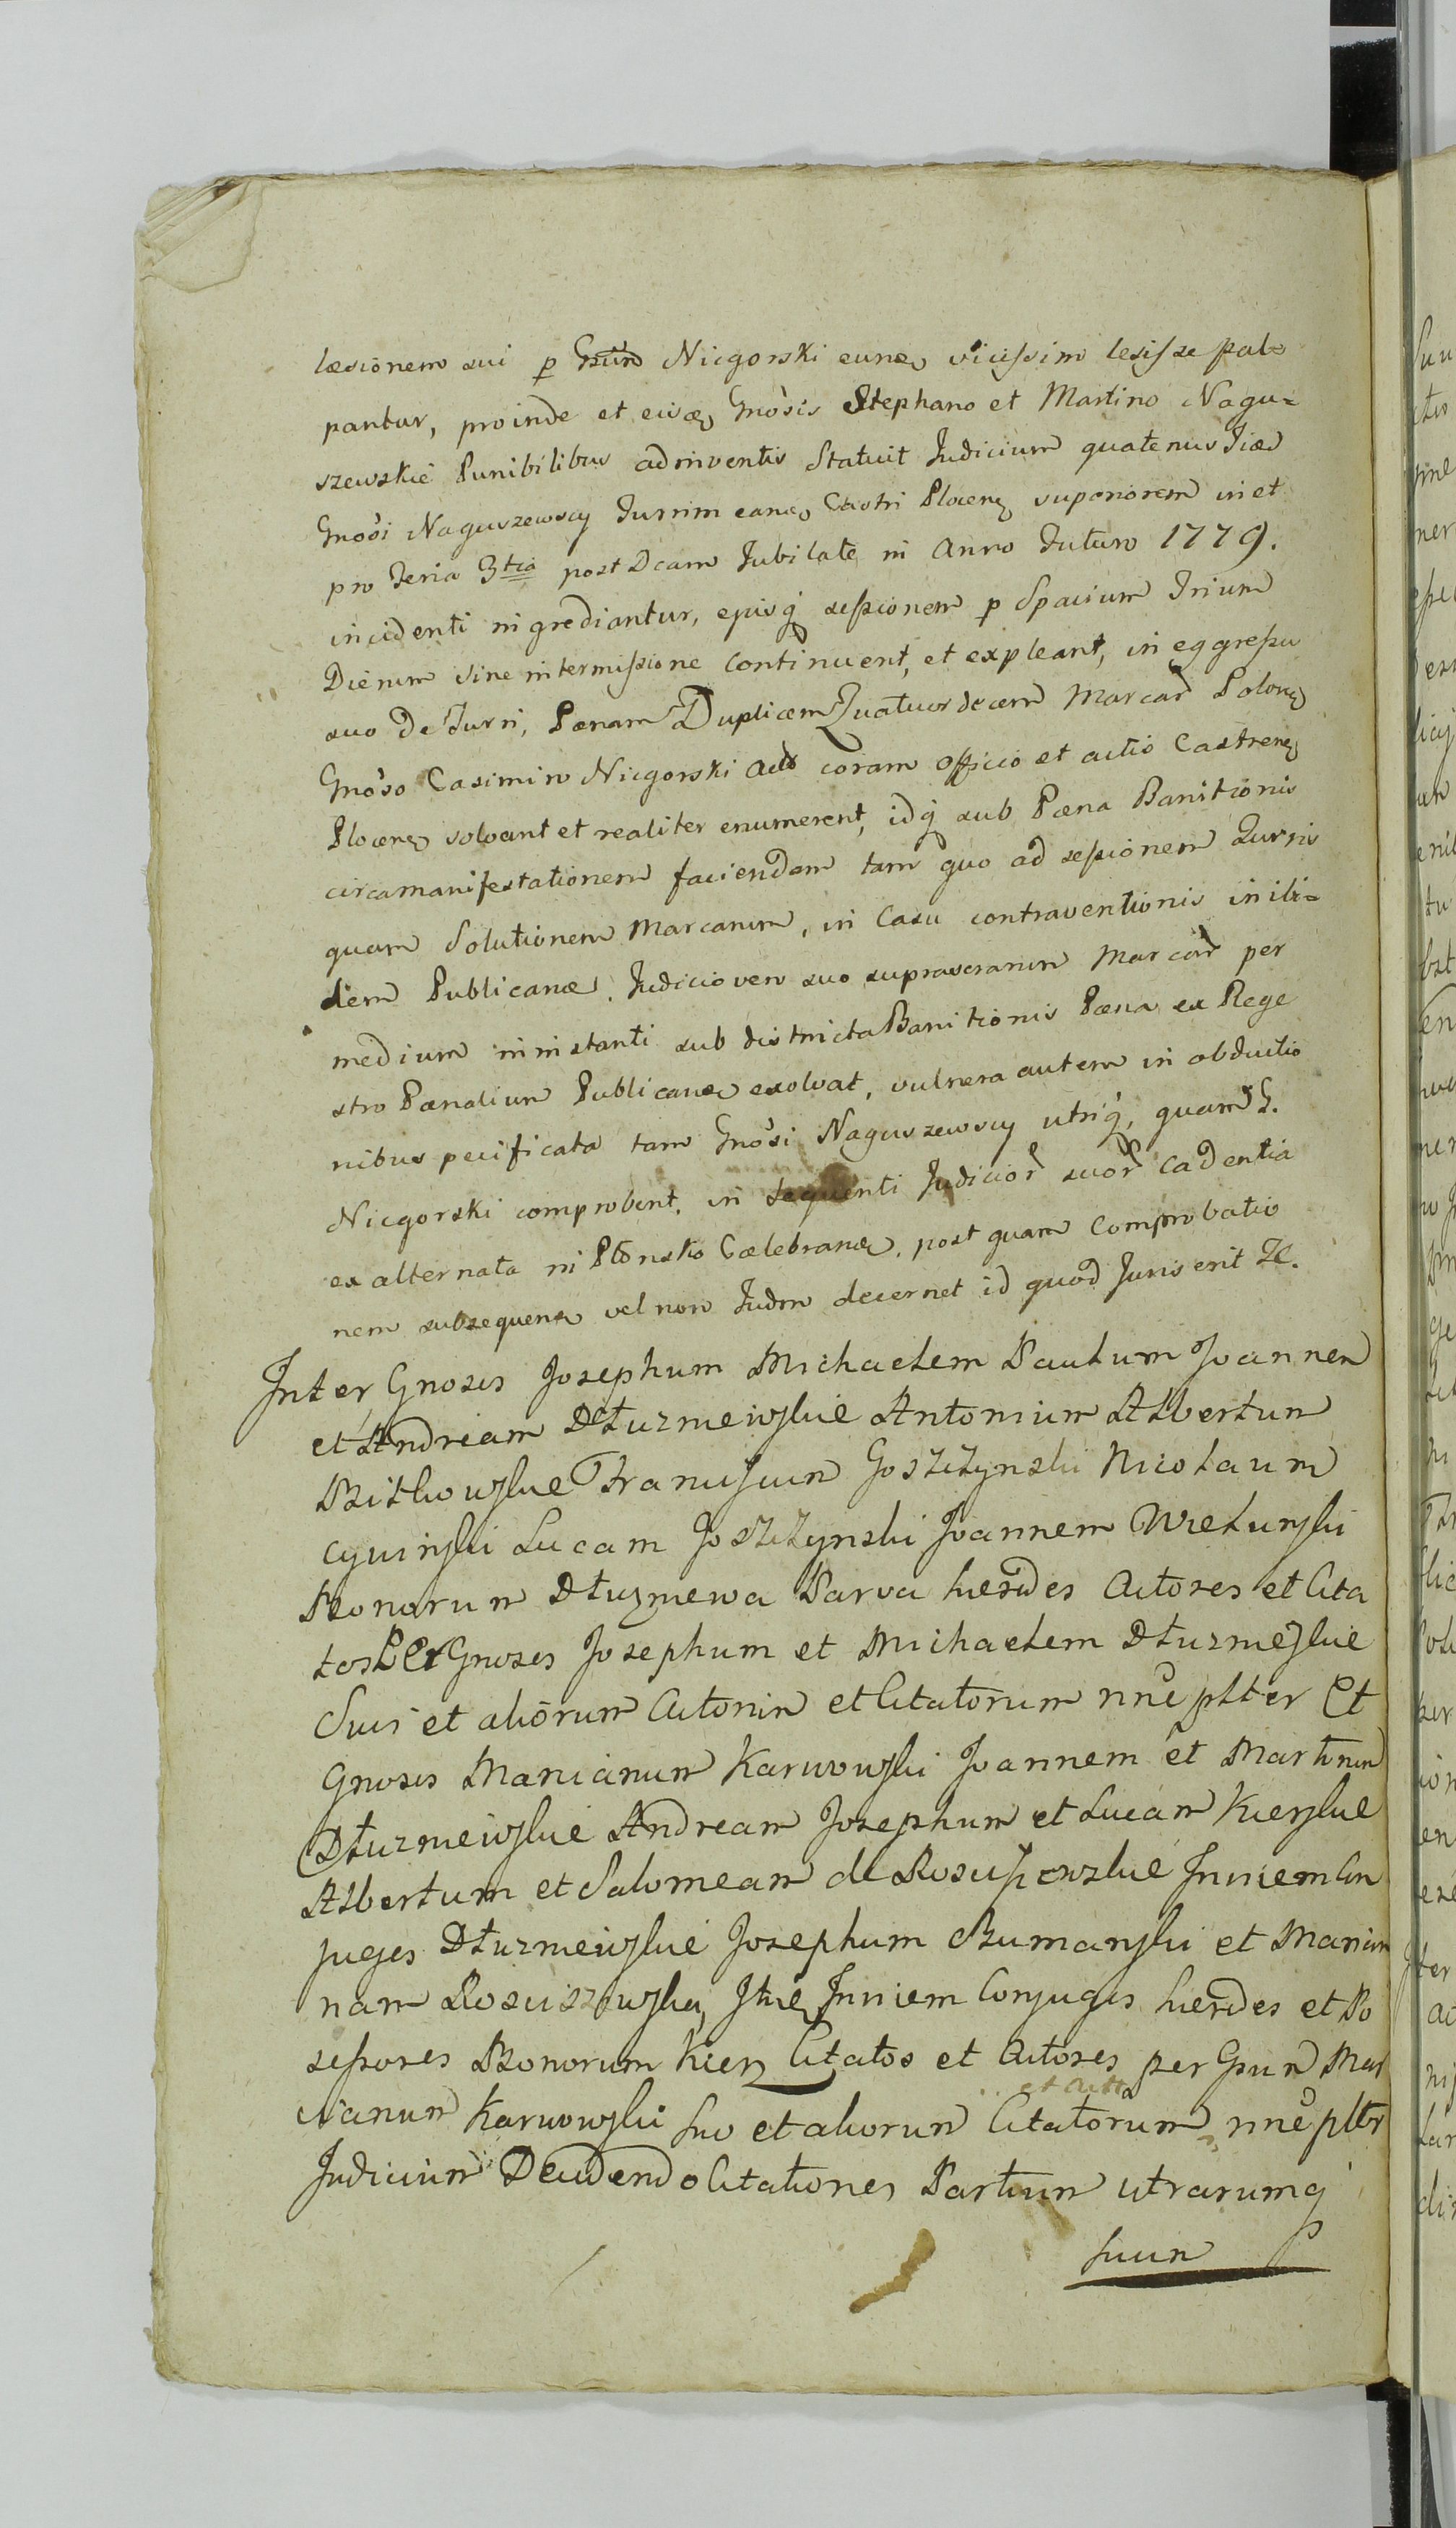 læsionem sui p Gsum Nicgorski eundem vicissim lesisse pal-
pantur, proinde et eisdem Gnosis Stephano et Martino Nagu=
szewskie Punibilibus adinventis Statuit Judicium quatenus iidem
Gnosi Naguszewscy Turrim eandem Castri Plocen superiorem in et
pro Feria 3tia post Dcam Jubilate in Anno Futuro 1779.
incidenti ingrediantur, ejusq sessionem p Spacium Trium
Dierum sine intermissione continuent, et expleant, in eggressu
suo de Turri, Pænam Duplicem Quatuordecem Marcar Polon
Gnoso Casimiro Nicgorski Act coram officio et actis Castren
Plocen solvant et realiter enumerent, idq sub Pæna Banitionis
circa manifestationem faciendam tam quo ad sessionem Turris
quam Solutionem Marcarum, in Casu contraventionis inibi=
dem Publicanda. Judicio vero suo suprascrarum Marcar per
medium in instanti sub districta Banitionis Pæna ex Rege
stro Pænalium Publicanda exolvat, vulnera autem in obductio
nibus pecificata tam Gnosi Naguszewscy utriq, quam G.
Nicgorski comprobent. in sequenti Judicior suor Cadentia
ex alternata in Płonsko Cælebranda. post quam Comprobatio
nem subsequendam vel non Judm decernet id quod Juris erit Ze.
Inter Gnosos Josephum Michaelem Paulum Joannem
et Andream Dłuzniewskie Antonium Albertum
Bitkowskie Franciscum Goszczynski Nicolaum
Cywinski Lucam Goszczynski Joannem Wielunski
Bonorum Dłuzniewa Parva hærdes Actores et Cita
tos Per Gnosos Josephum et Michaelem Dłuzniewskie
Suis et aliorum Actorum et Citatorum nne plter Et
Gnosos Marianum Karwowski Joannem et Martinum
Dłuzniewskie Andream Josephum et Lucam Kierskie
Albertum et Salomeam de Rosciszewskie Invicem Con
juges Dłuzniewskie Josephum Rumanski et Marian
nam Rosciszewska, Invicem Conjuges hærdes et Po
sessores Bonorum Kierz Citatos et Actores per Gsum Mar
cianum Karwowski suo et aliorum et Actt Citatorum nne plter
Judicium Decidendo Citationes Partium utrarumq
suum